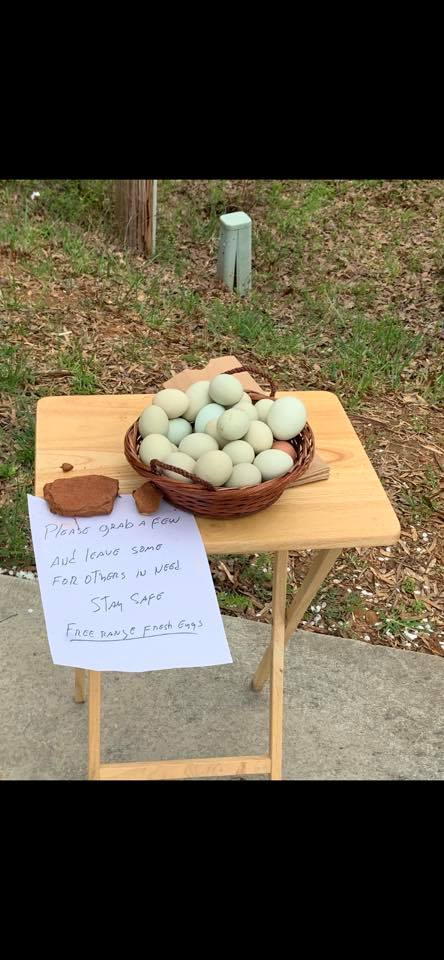 Please grab a few
And leave some
for others in need
Stay safe
Free range fresh eggs